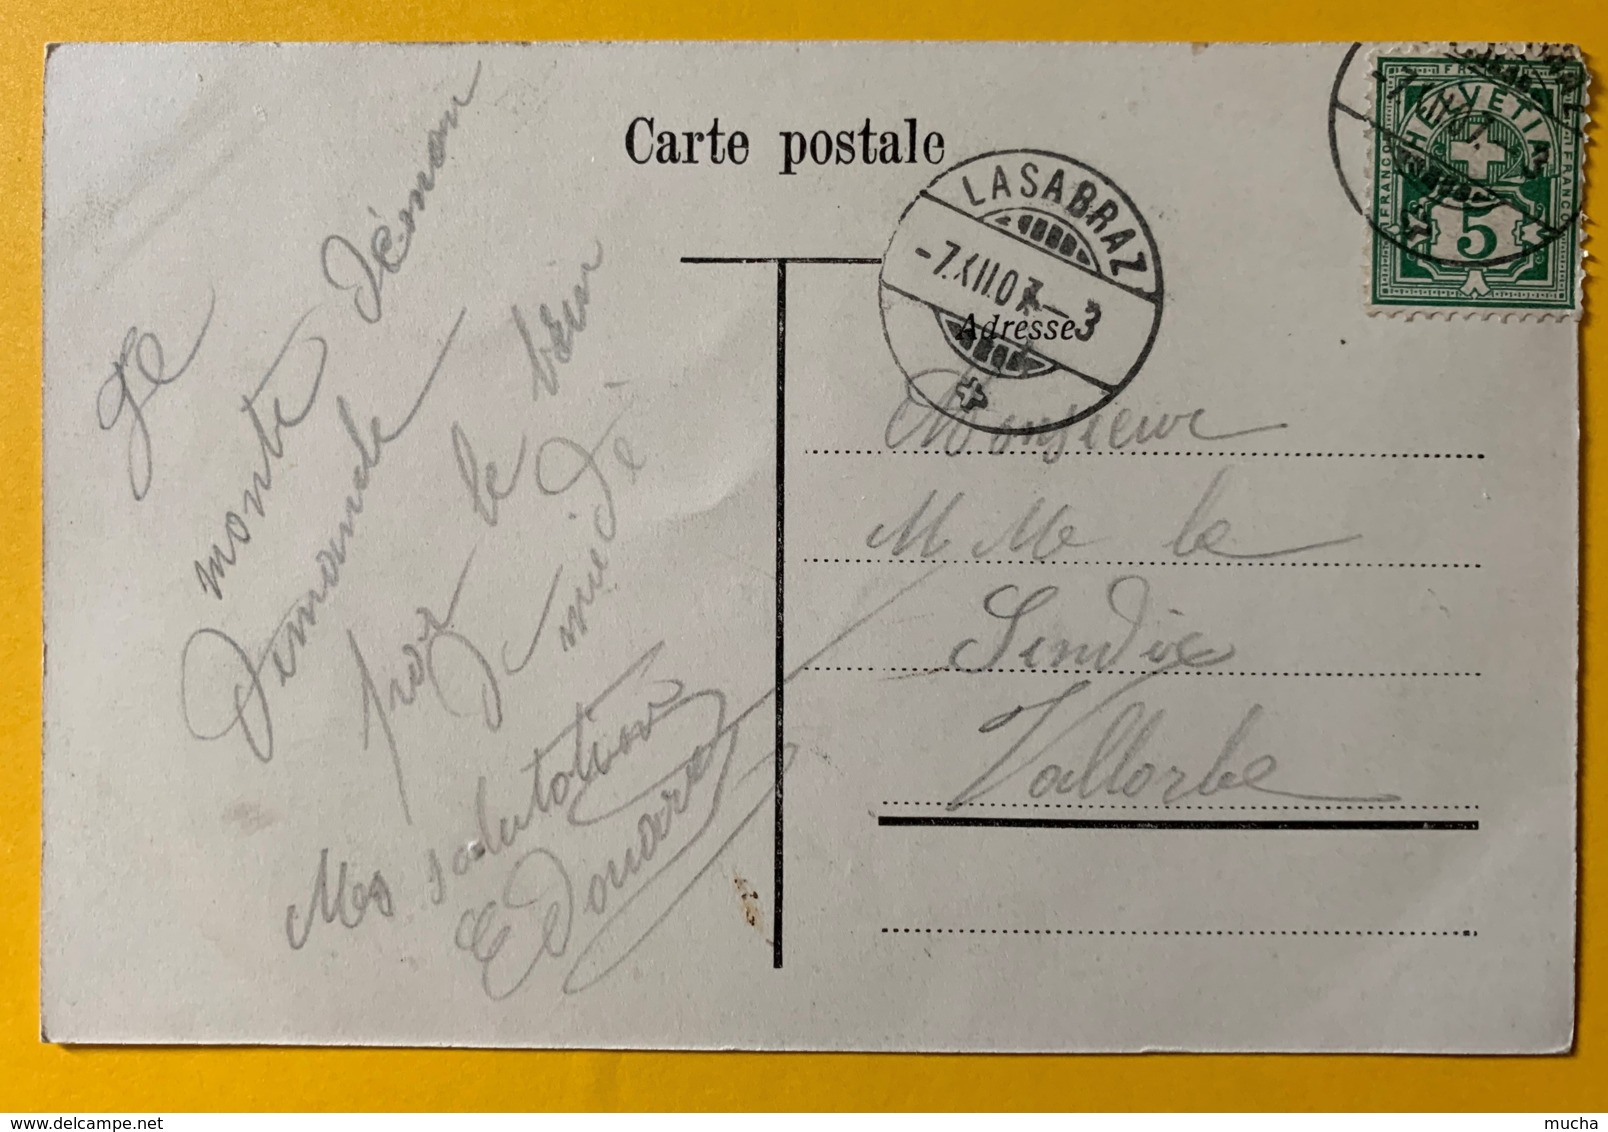 Carte postale
LASABRAZ
-7.XII.07.-3
HELVETIA
FRANCO
FRANCO
5
Adresse
Monsieur
M Me le
Sindic
Vallorbe
ge
monte démon
Dimanche
par le train
De midi
Mes salutations
Edouard
delcampe.net
mucha